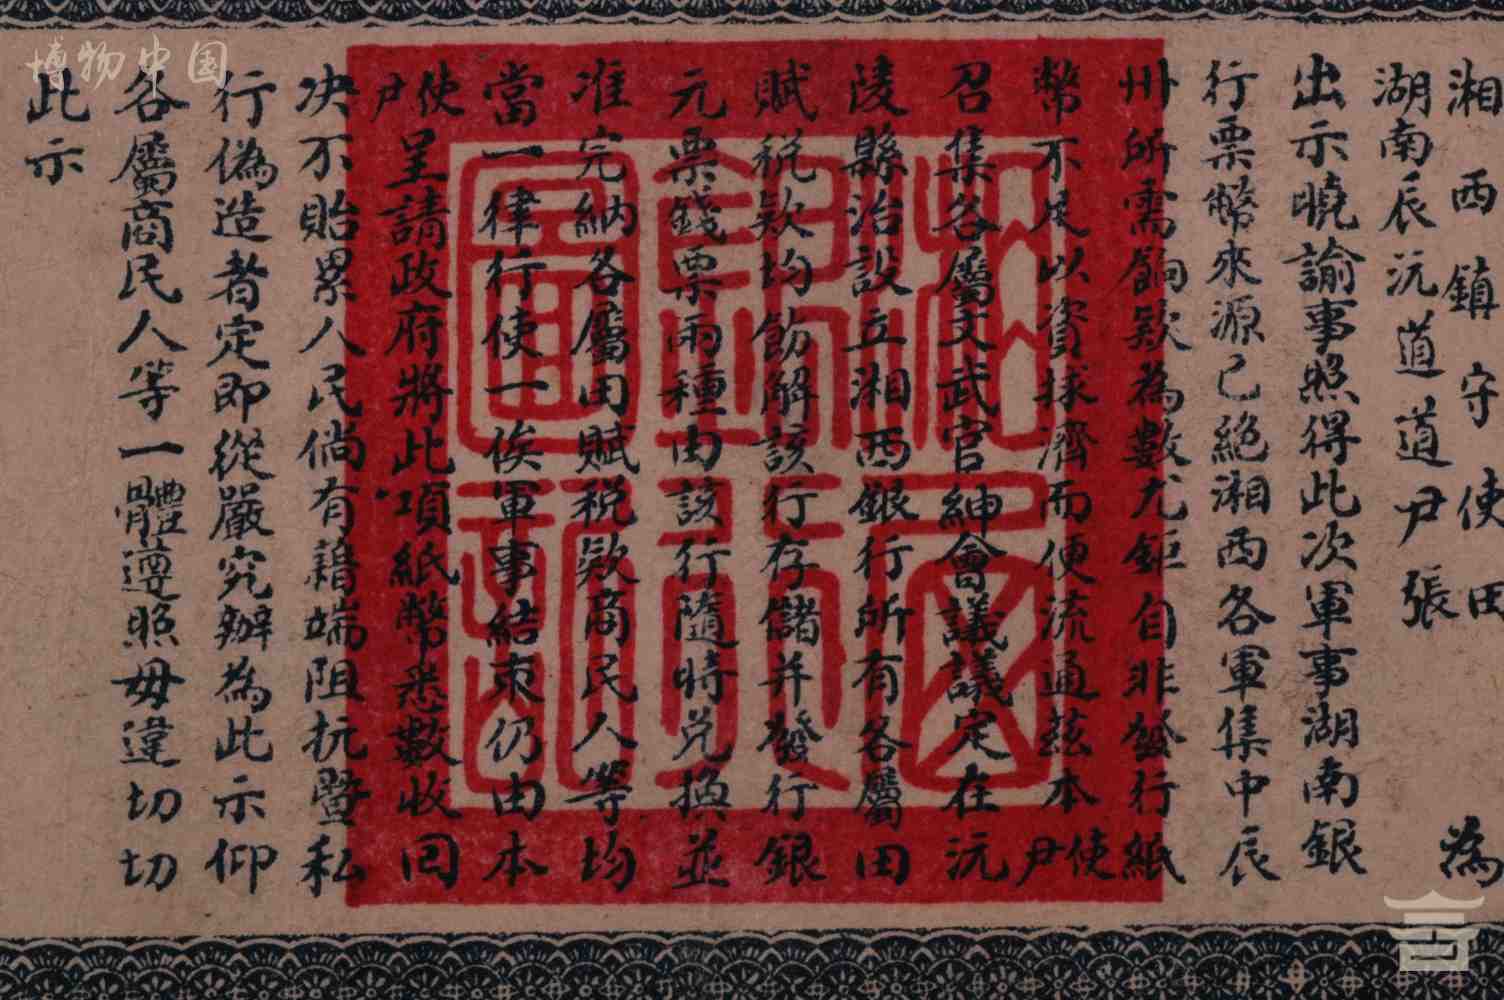 湘西鎮守使田
湖南辰沅道道尹張
為
出示曉諭事照得此次軍事湖南銀
行票幣來源已絶湘西各軍集中辰
州所需餉欵為數尤鉅自非發行紙
幣不足以資接濟而便流通茲本使尹
召集各屬文武官紳會議議定在沅
陵縣治設立湘西銀行所有各屬田
賦税欵均飭解該行存儲并發行銀
元票錢票兩種由該行隨時兑換並
准完納各屬田賦税欵商民人等均
當一律行使一俟軍事結束仍由本
使尹呈請政府將此項紙幣悉數收囘
决不貽累人民倘有藉端阻抗暨私
行偽造者定即從嚴究辦為此示仰
各屬商民人等一體遵照毋違切切
此示
博物中国